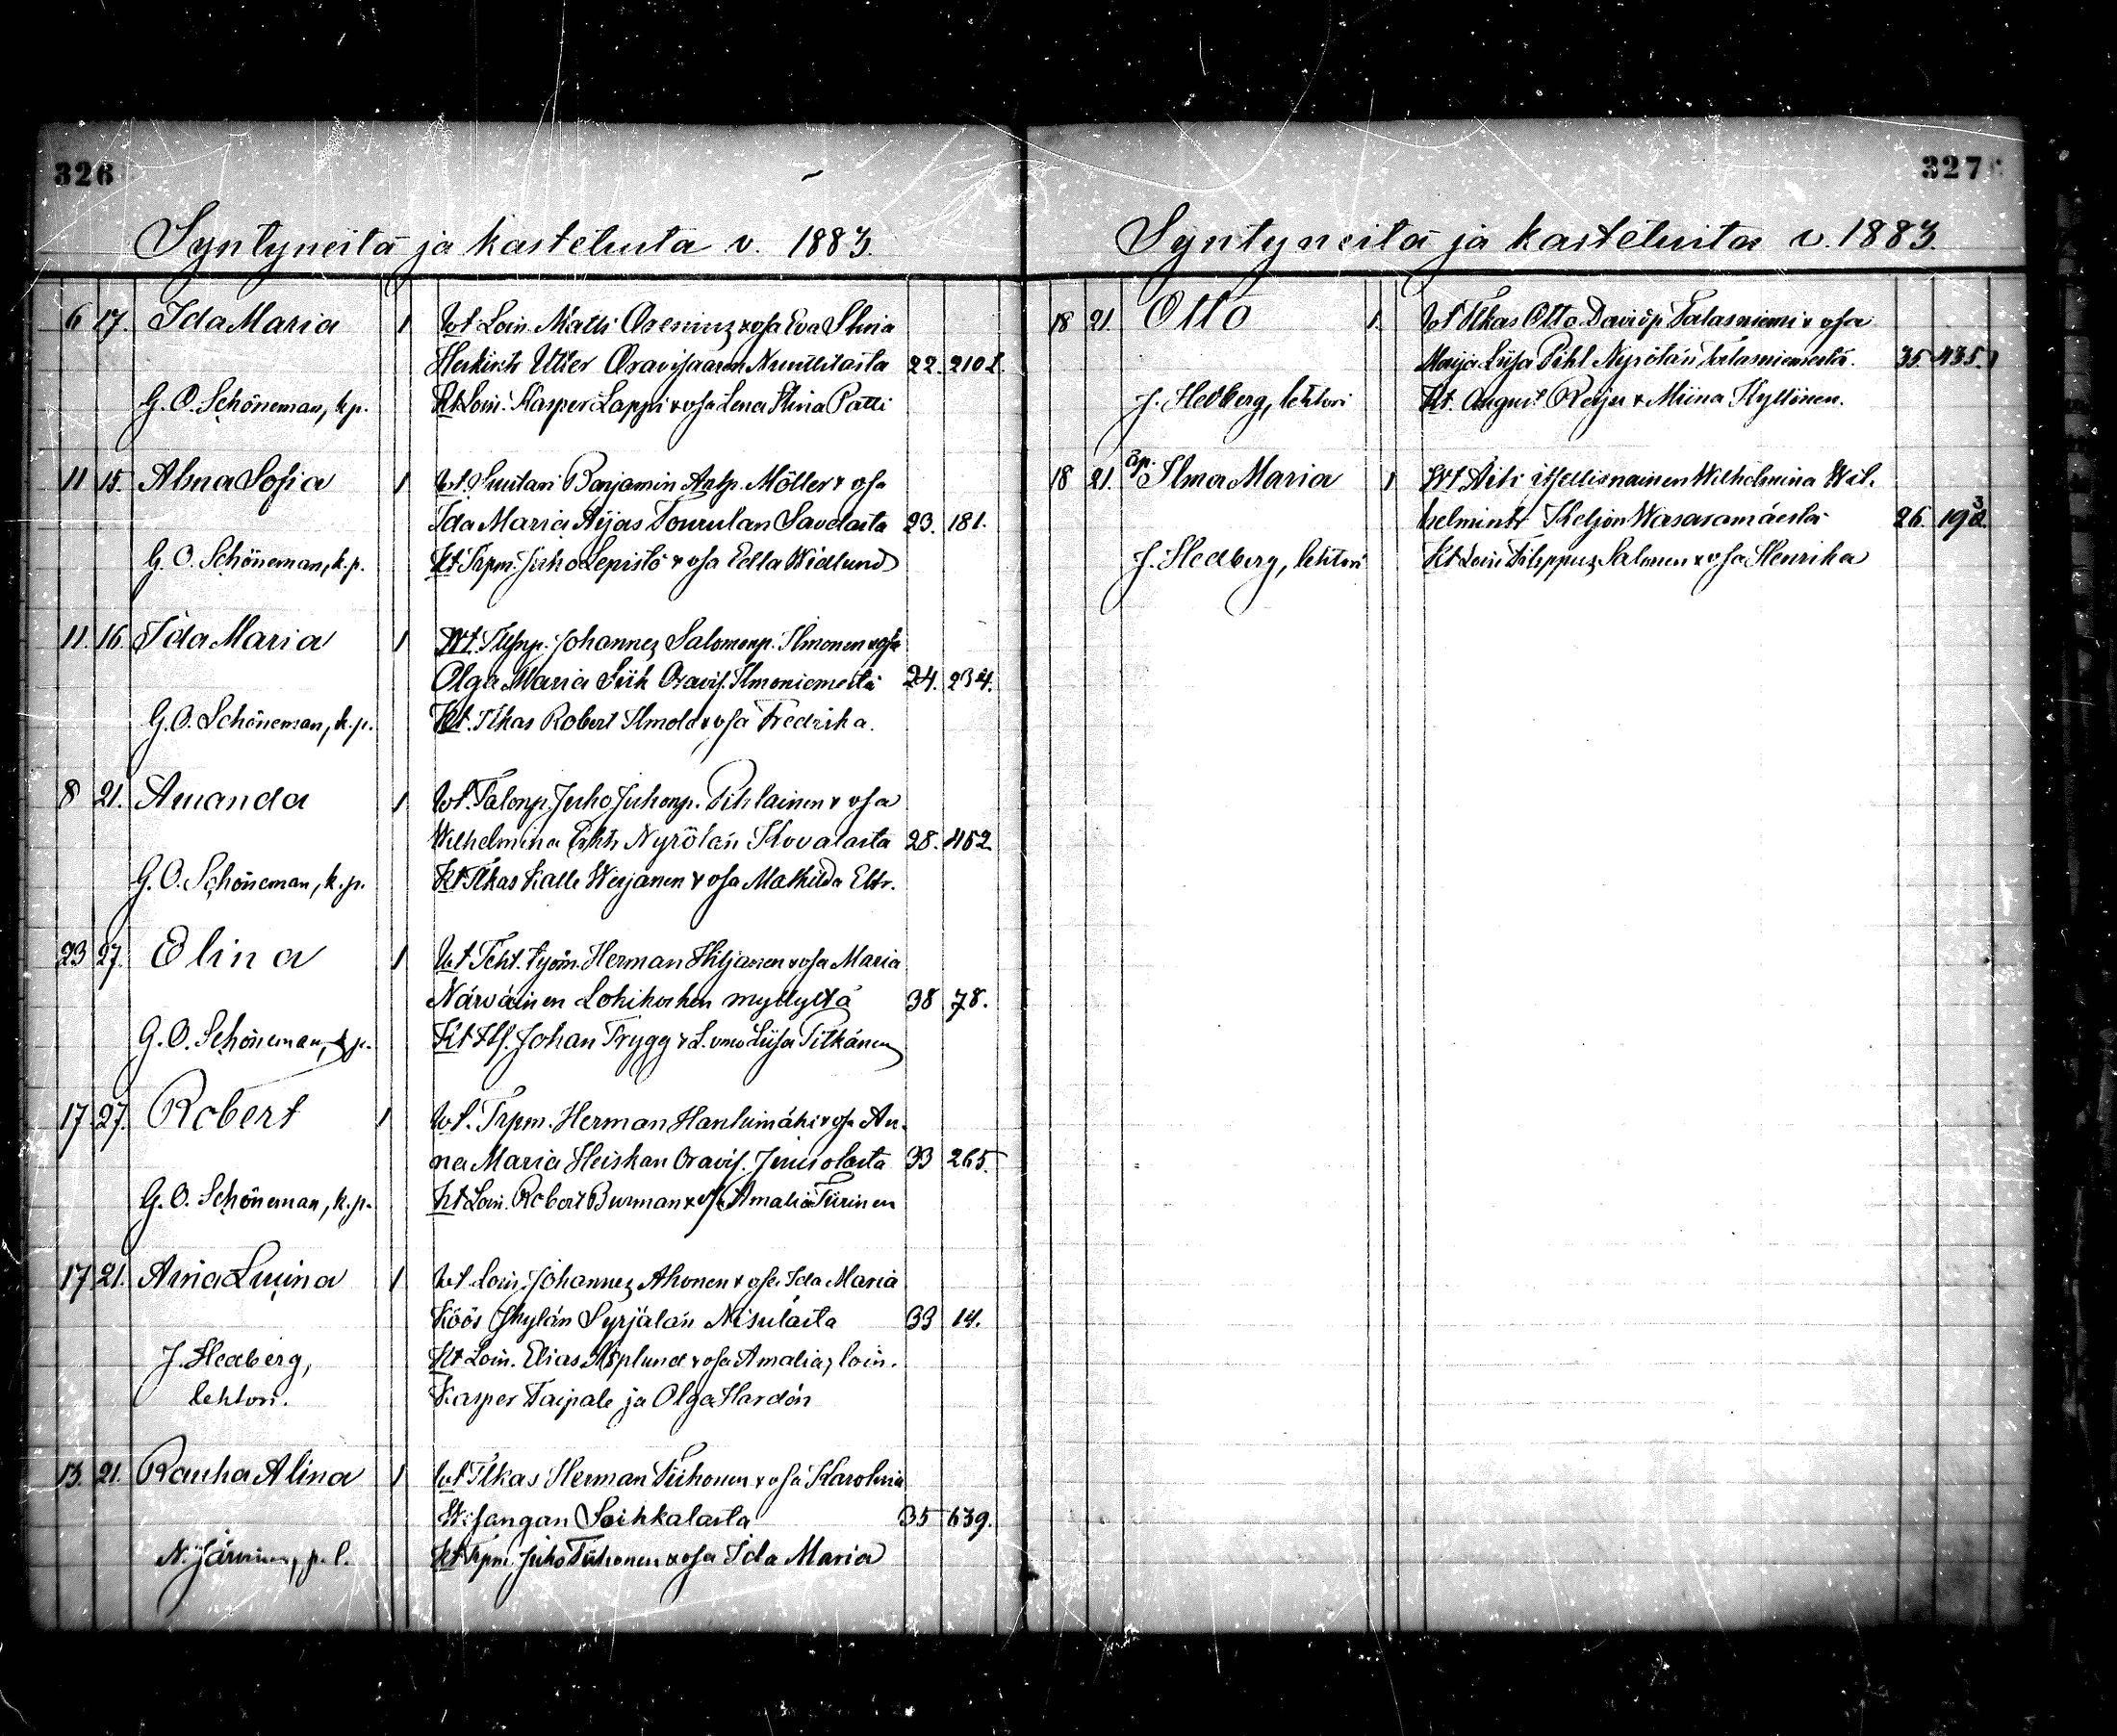 326
Syntyneitä ja kasteluita v. 1883.
6 17. Ida Maria 1 Wt. Loin. Matti Oresniuz & vsa Eva Stina
Heikintr Utter Oravisaaren Nuuttilasta 22. 210
G. O. Schöneman, k.p. Kt. Loin. Kasper Lappi & vsa Lena Stina Patti
11 15. Alma Sofia 1 Wt. Suutari Benjamin Antp. Möller & vsa
Ida Maria Äijäs Tourulan Savelasta 23. 181.
G. O. Schöneman, k.p. Kt. Trpm. Juho Lepistö & vsa Edla Widlund
11. 16. Ida Maria 1 Wt. Johannez Salomonp. Ilmonen & vsa
Olga Maria Siik Oravis. Ilmoniemeltä 24. 234.
G. O. Schöneman, k.p. Kt. Tlkas Robert Ilmola & vsa Fredrika.
8 21. Amanda 1 Wt. Talonp. Juho Juhonp. Pihlainen & vsa
Wilhelmina Nyrölän Kovalasta 28. 452
G. O. Schöneman, k.p. Kt. Tlkas Kalle Werjanen & vsa Mathilda Eltr.
23 27. Elina 1 Wt. Teht. työm. Herman Hiljanen & vsa Maria
Närväinen Lohikosken myllyltä 38 78.
G. O. Schöneman, k.p. Kt. Johan Trygg & Liisa Pitkänen
17 27. Robert 1 Wt. Trpm. Herman Hankimäki & vsa An-
na Maria Heiskan Oravis. Juusolasta 33 265.
G. O. Schöneman, k.p. Kt. Loin. Robert Burman & vsa Amalia Tiirinen
17 21. Aina Luina 1 Wt. Loin. Johannez Ahonen & vsa Ida Maria
Köös Jkylän Syrjälän Nisulasta 33 14.
J. Hedberg, Kt. Loin. Elias Asplund & vsa Amalia, loin.
lehtori. Kasper Taipale ja Olga Hardén
13. 21. Rauha Alina 1 Wt. Tlkas Herman Tiihonen & vsa Karolina
Wesangan Soihkalasta 35 639.
N. Järvinen, p. l. Kt. Trpm. Juho Tiihonen & vsa Ida Maria
327
Syntyneitä ja kasteluita v. 1883.
18 21. Otto 1. Wt. Tlkas Otto Davidp. Talasniemi & vsa
Maija Liisa Pihl Nyrölän Talasniemestä. 35. 435.
J. Hedberg, lehtori Kt. August Reijer & Miina Kyllönen.
18 21. äp. Ilma Maria 1 Wt. Äiti itsellisnainen Wilhelmina Wil-
helmintr Keljon Wasaramäestä 26 193
J. Hedberg, lehtori Kt. Loin Filippuz Salonen & vsa Henrika